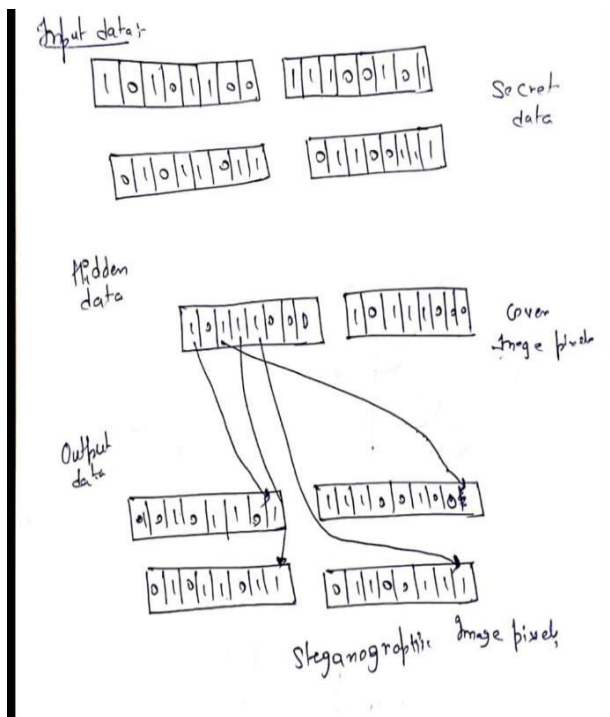 Input data:-
1 0 1 0 1 1 0 0
1 1 1 0 0 1 0 1
Secret
data
0 1 0 1 1 0 1 1
0 1 1 0 0 1 1 1
Hidden
data
1 0 1 1 1 0 0 0
1 0 1 1 1 0 0 0
Cover
Image pixels
Output
data
1 1 1 0 0 1 0
0 1 0 1 1 0 1 1
0 1 1 0 0 1 1 1
Steganographic Image pixels